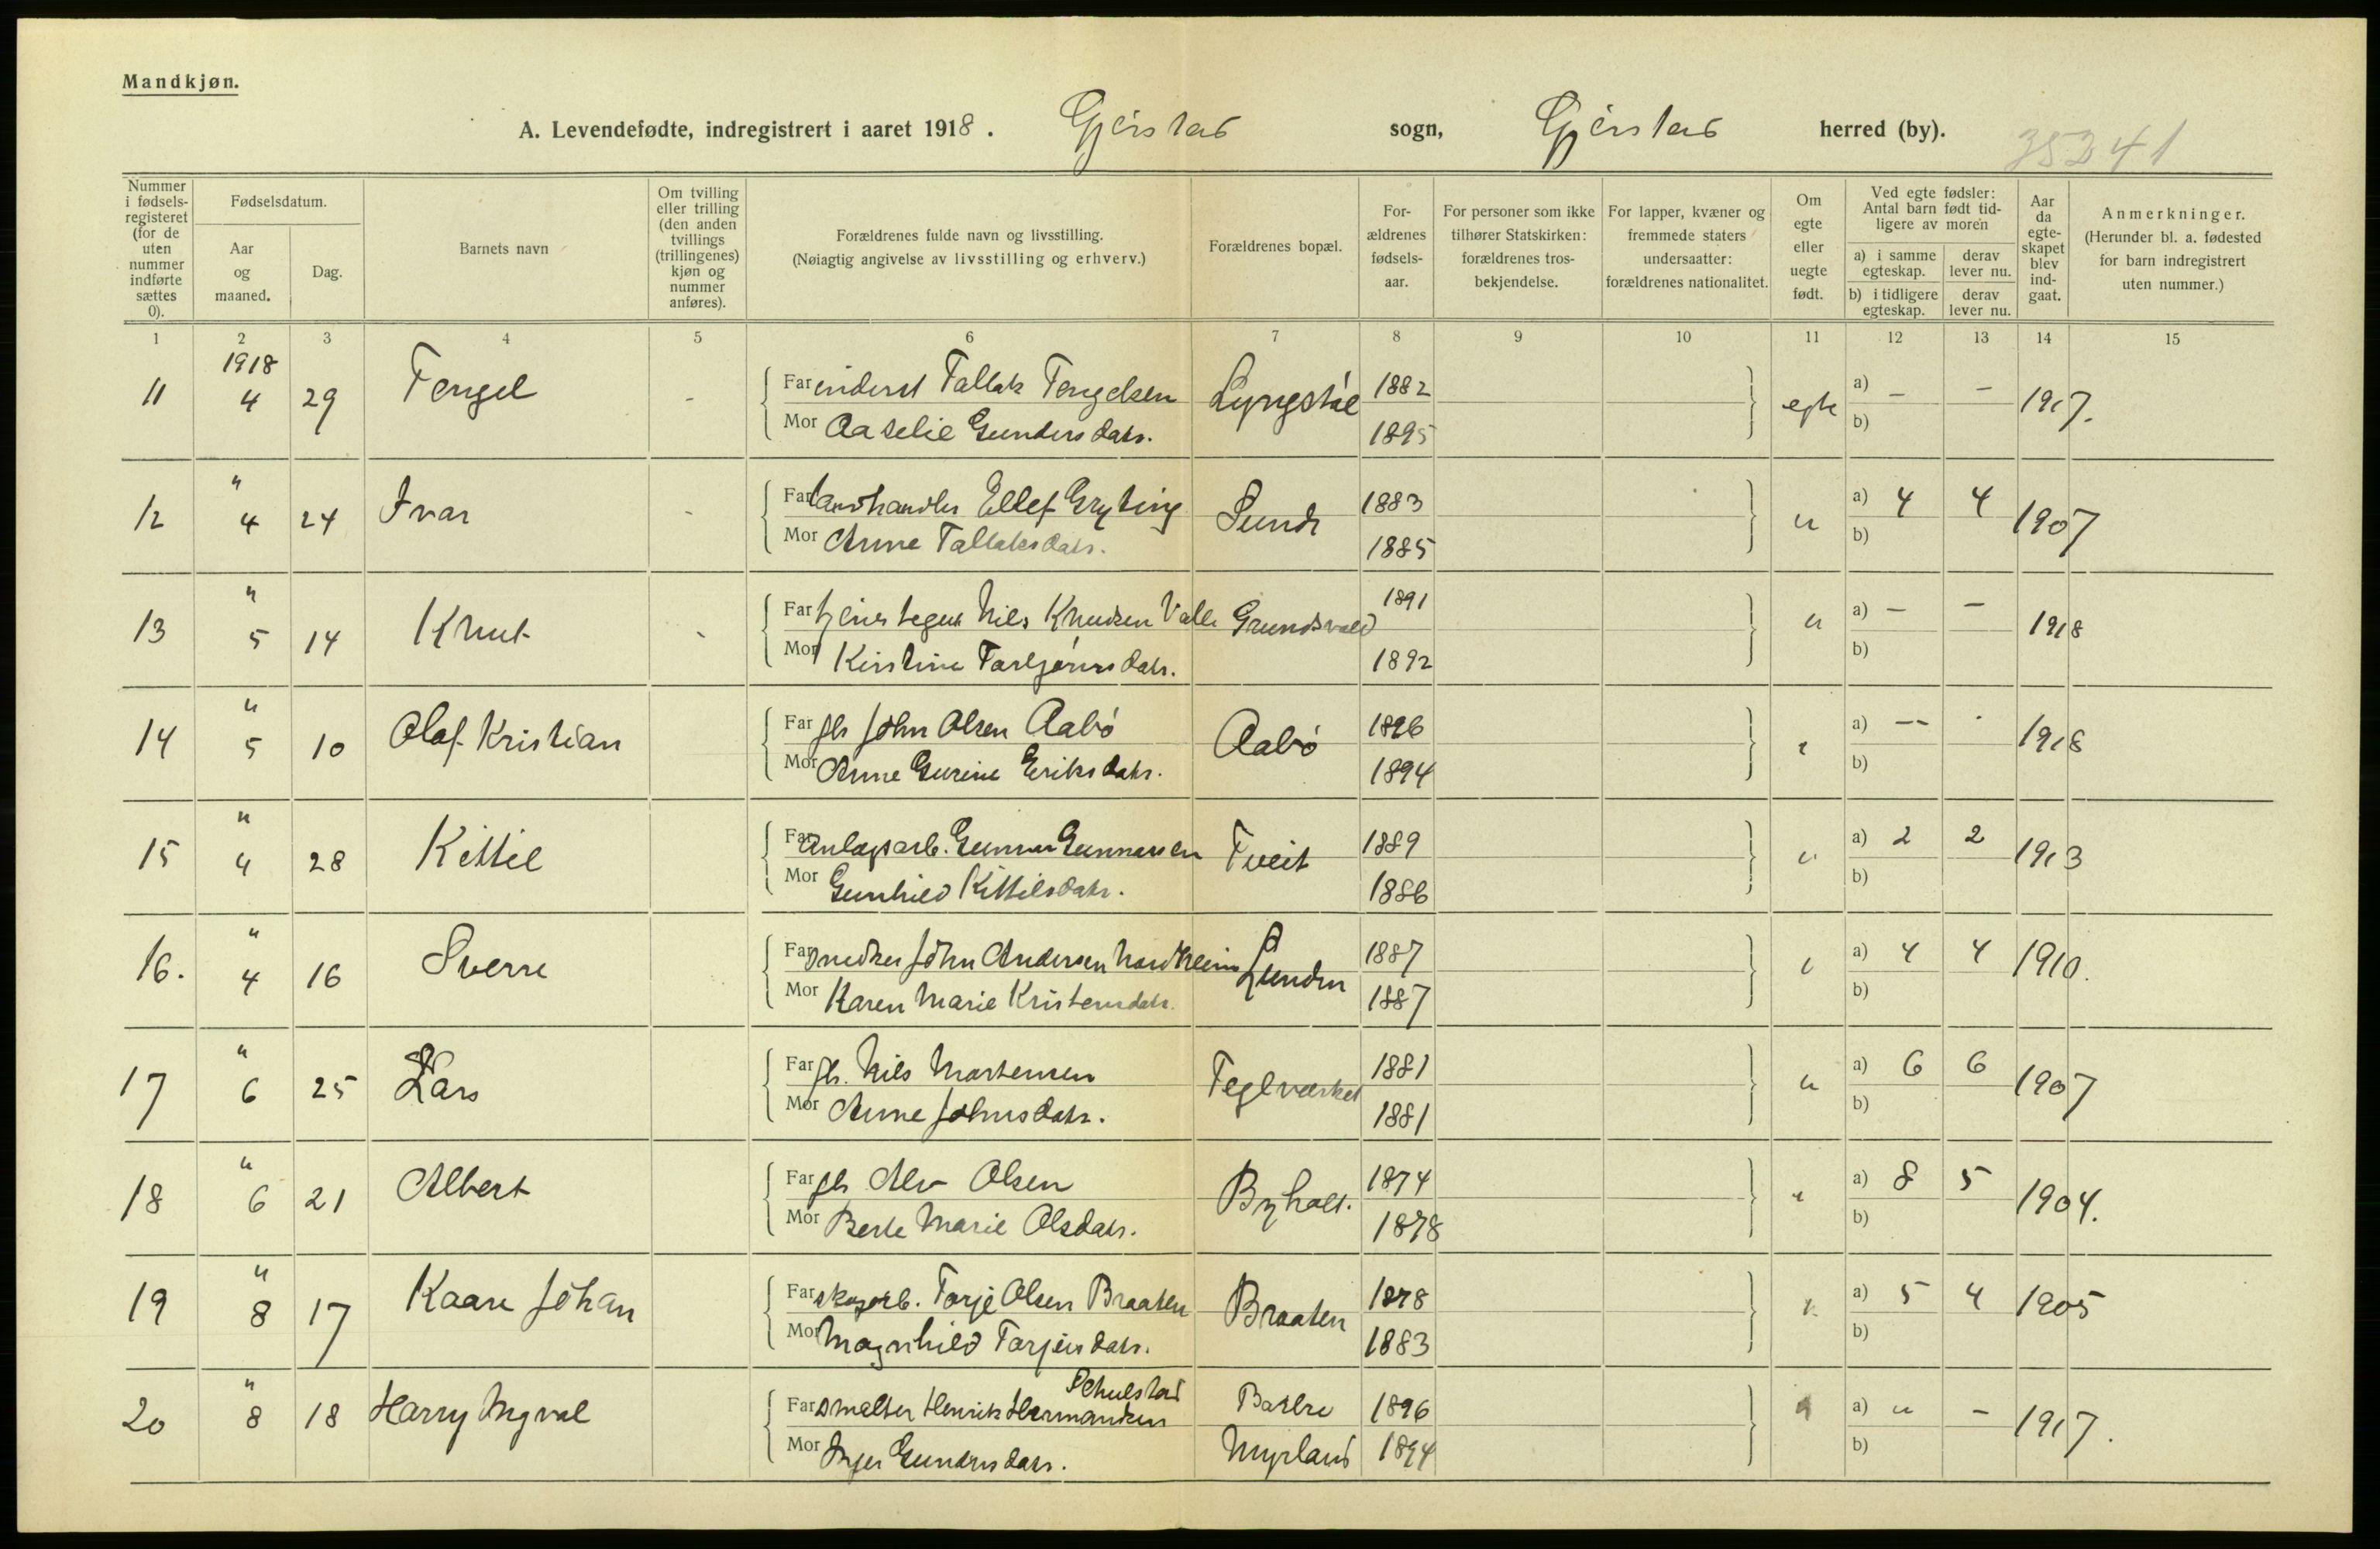 Mandkjøn.
A. Levendefødte, indregistrert i aaret 1918. Gjerstad sogn, Gjerstad herred (by). 35241
Nummer i fødsels-registeret (for de uten nummer indførte sættes 0).
Fødselsdatum.
Aar og maaned.
Dag.
Barnets navn
Om tvilling eller trilling (den anden tvillings (trillingenes) kjøn og nummer anføres).
Forældrenes fulde navn og livsstilling.
(Nøiagtig angivelse av livsstilling og erhverv.)
Forældrenes bopæl.
For-ældrenes fødsels-aar.
For personer som ikke tilhører Statskirken: forældrenes tros-bekjendelse.
For lapper, kvæner og fremmede staters undersaatter: forældrenes nationalitet.
Om egte eller uegte født.
Ved egte fødsler: Antal barn født tid-ligere av moren
a) i samme egteskap.
derav lever nu.
b) i tidligere egteskap.
derav lever nu.
Aar da egte-skapet blev ind-gaat.
Anmerkninger.
(Herunder bl. a. fødested for barn indregistrert uten nummer.)
1 2 3 4 5 6 7 8 9 10 11 12 13 14 15
1918
11 4 29 Tengel - Far inderst Tallak Tengelsen Lyngstøl 1882 egte a) - - 1917.
Mor Aaselie Gundersdatr. 1895 b)
12 " 4 24 Ivar - Far landhandler Ellef Gryting Sunde 1883 " a) 4 4 1907
Mor Anne Tallaksdatr. 1885 b)
13 " 5 14 Knut - Far Nils Knudsen Valle Grundsvald 1891 " a) - - 1918
Mor Kirstine Tarjeirsdatr. 1892 b)
14 " 5 10 Olaf Kristian Far gb John Olsen Aabø Aabø 1896 " a) - - 1918
Mor Anne Gurine Eriksdatr. 1894 b)
15 " 4 28 Kittil Far Anlægsarb. Gunnar Gunnarsen Tveit 1889 " a) 2 2 1913
Mor Gunhild Kittilsdatr. 1886 b)
16. " 4 16 Sverre Far snedker John Andersen Nordheim Lunden 1887 " a) 4 4 1910.
Mor Karen Marie Kristensdatr. 1887 b)
17 " 6 25 Lars Far gb. Nils Mortensen Teglverket 1881 " a) 6 6 1907
Mor Anne Johnsdatr. 1881 b)
18 " 6 21 Albert Far gb Alv Olsen Byholt. 1874 " a) 8 5 1904.
Mor Berte Marie Olsdatr. 1878 b)
19 " 8 17 Kaare Johan Far skogarb. Torje Olsen Braaten Braaten 1878 " a) 5 4 1905
Mor Magnhild Torjusdatr. 1883 b)
Schulstad
20 " 8 18 Harry Ingval Far smelter Henrik Hermansen 1896 " a) " - 1917.
Mor Inger Gundersdatr. Myrland 1894 b)